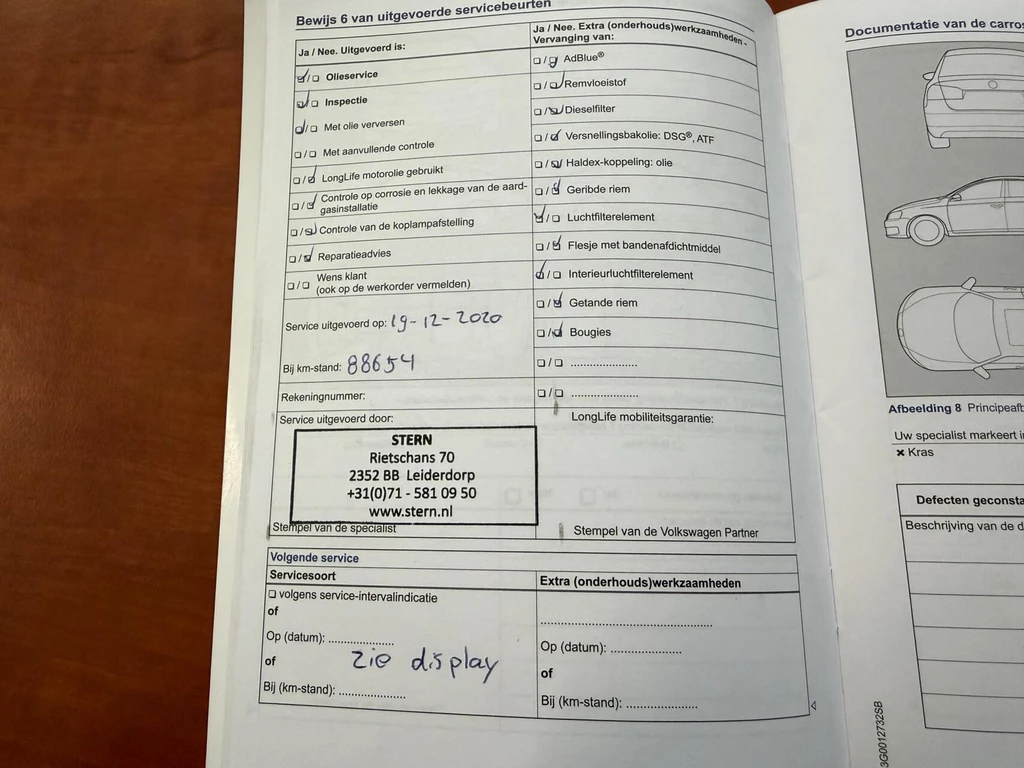 Bewijs 6 van uitgevoerde servicebeurten
Ja / Nee. Uitgevoerd is:
☑/☐ Olieservice
☑/☐ Inspectie
☑/☐ Met olie verversen
☐/☐ Met aanvullende controle
☐/☑ LongLife motorolie gebruikt
☐/☑ Controle op corrosie en lekkage van de aard-
gasinstallatie
☐/☑ Controle van de koplampafstelling
☐/☑ Reparatieadvies
☐/☐ Wens klant
(ook op de werkorder vermelden)
Service uitgevoerd op: 19-12-2020
Bij km-stand: 88654
Rekeningnummer:
Service uitgevoerd door:
STERN
Rietschans 70
2352 BB Leiderdorp
+31(0)71 - 581 09 50
www.stern.nl
Stempel van de specialist
Ja / Nee. Extra (onderhouds)werkzaamheden -
Vervanging van:
☐/☑ AdBlue®
☐/☑ Remvloeistof
☐/☑ Dieselfilter
☐/☑ Versnellingsbakolie: DSG®, ATF
☐/☑ Haldex-koppeling: olie
☐/☑ Geribde riem
☑/☐ Luchtfilterelement
☐/☑ Flesje met bandenafdichtmiddel
☑/☐ Interieurluchtfilterelement
☐/☑ Getande riem
☐/☑ Bougies
☐/☐ .....................
☐/☐ .....................
LongLife mobiliteitsgarantie:
Stempel van de Volkswagen Partner
Volgende service
Servicesoort
☐ volgens service-intervalindicatie
of
Op (datum): .....................
of
zie display
Bij (km-stand): .....................
Extra (onderhouds)werkzaamheden
Op (datum): .....................
of
Bij (km-stand): .....................
Documentatie van de carros
Afbeelding 8 Principeaf
Uw specialist markeert i
× Kras
Defecten geconsta
Beschrijving van de d
3G0012732SB